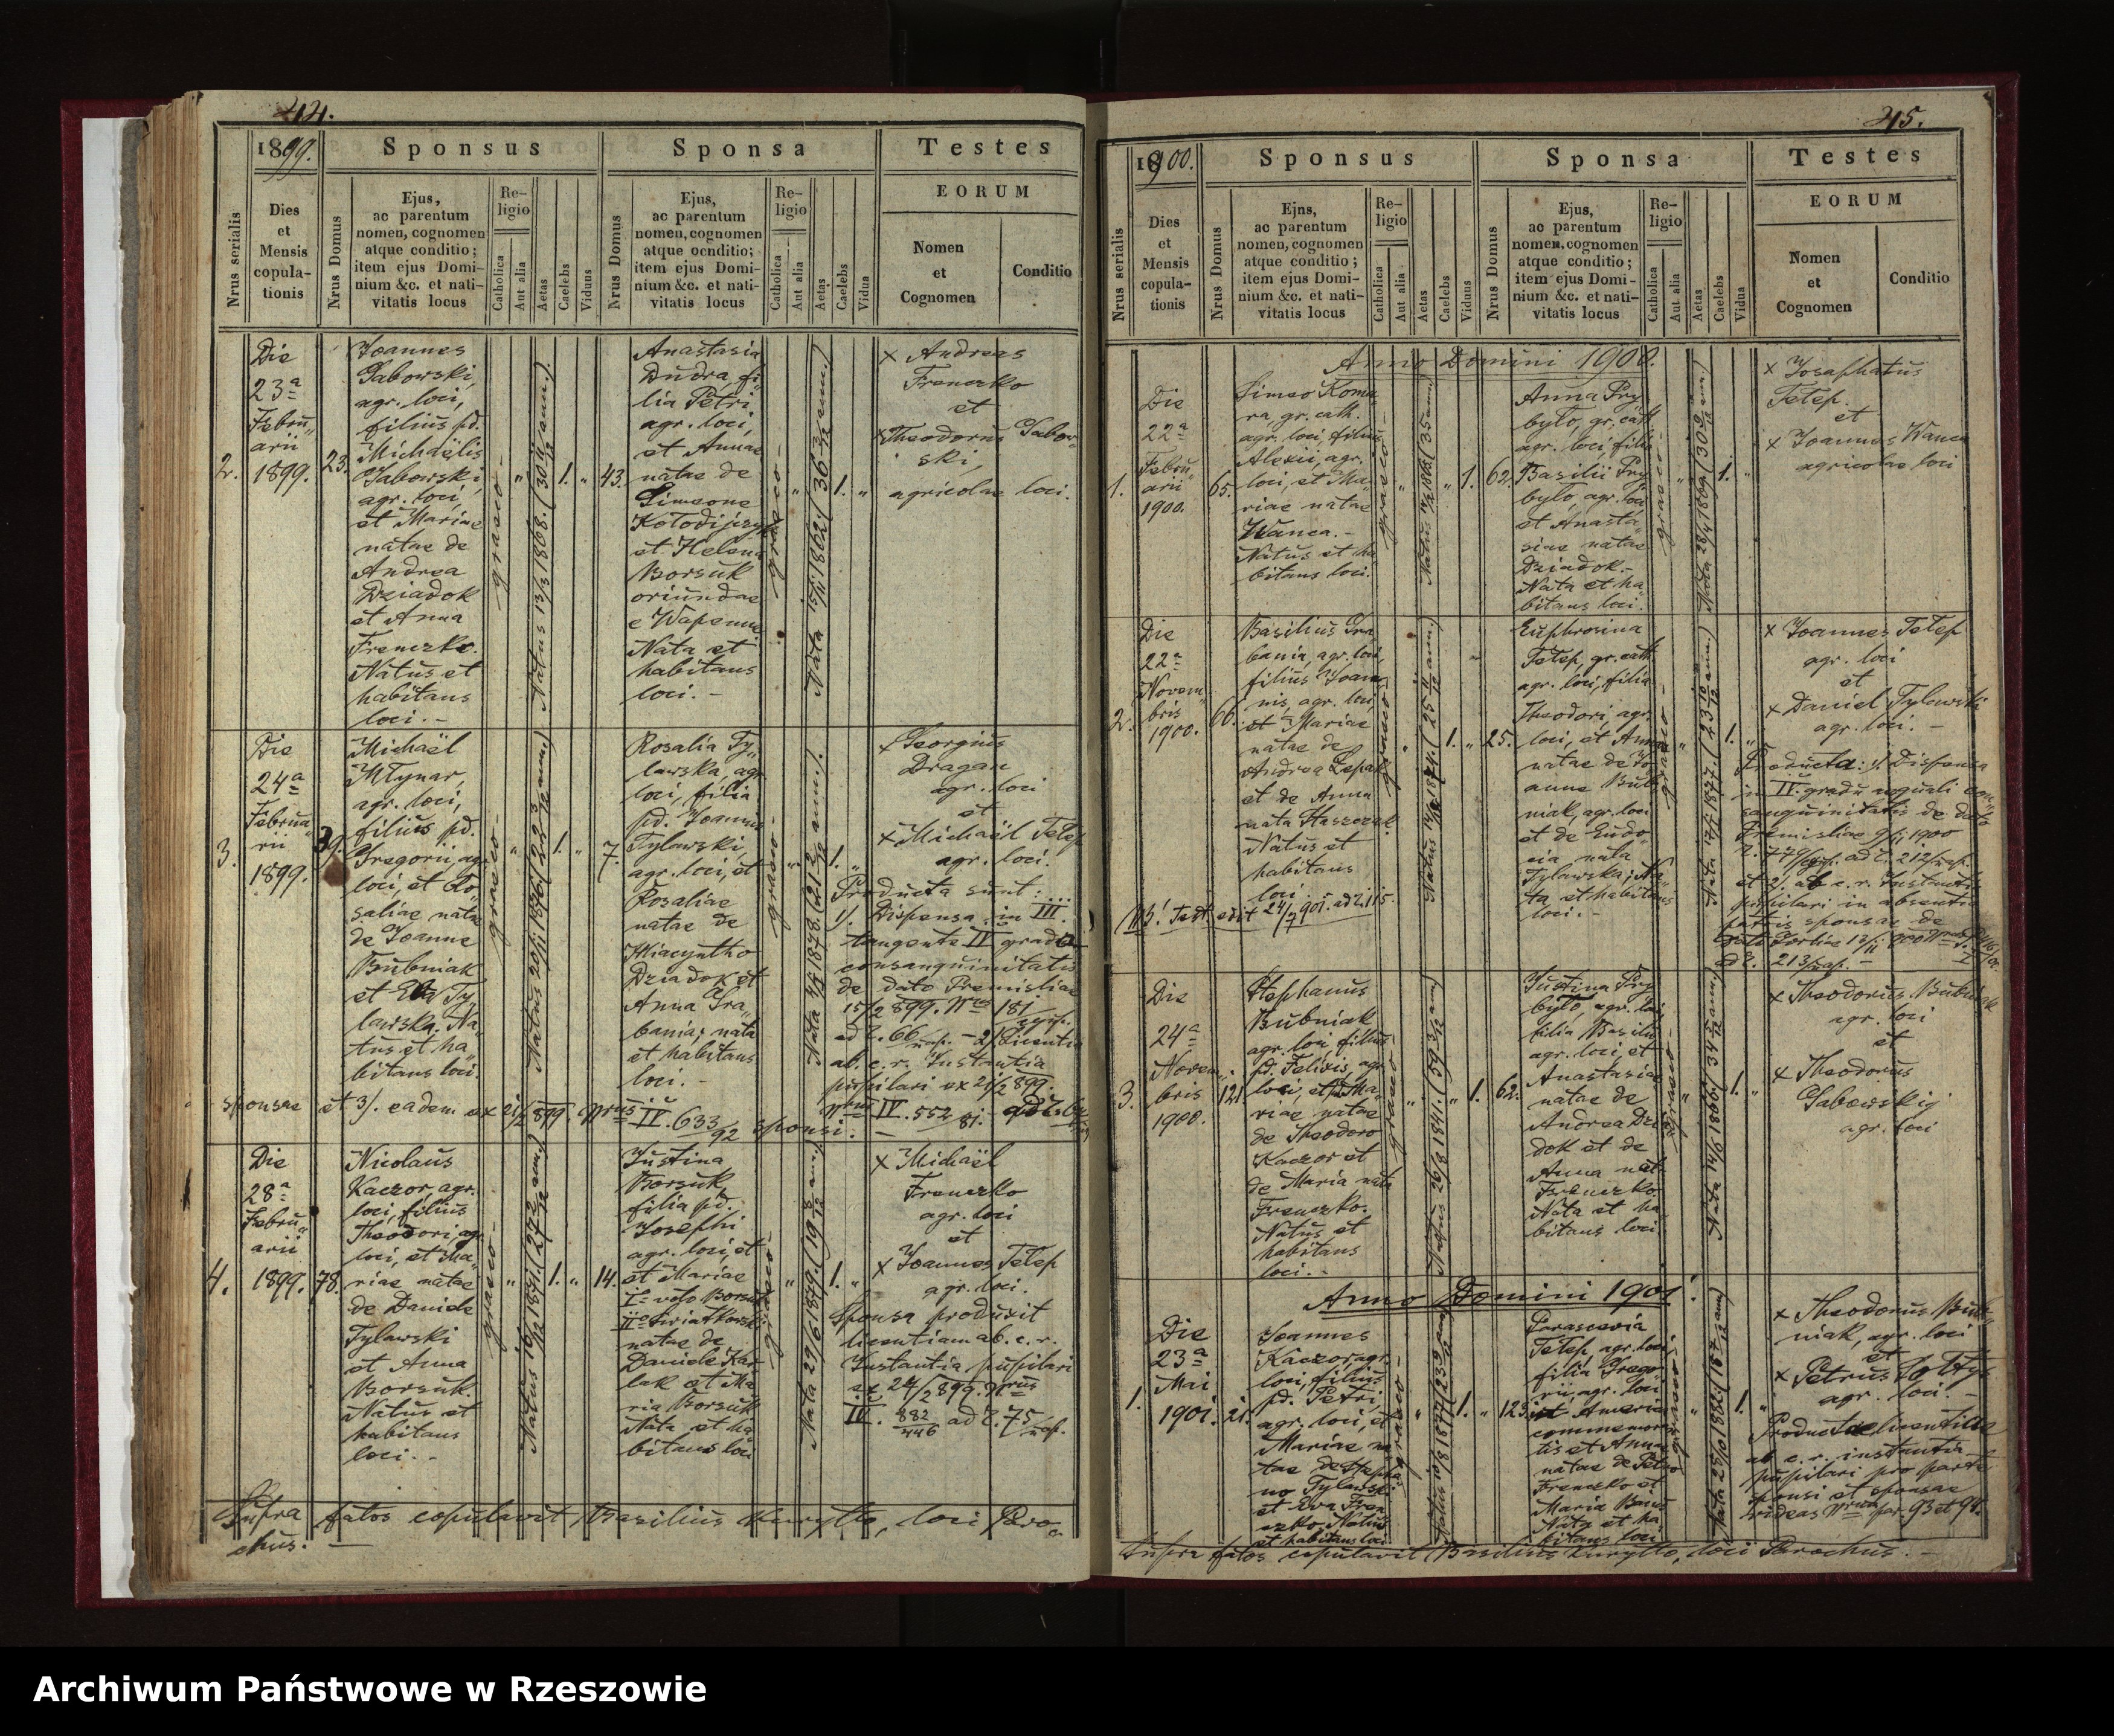 44.
1899.
Sponsus
Sponsa
Testes
Nrus serialis
Dies
et
Mensis
copula-
tionis
Nrus Domus
Ejus,
ac parentum
nomen, cognomen
atque conditio;
item ejus Domi-
nium &c. et nati-
vitatis locus
Re-
ligio
Catholica
Aut alia
Aetas
Caelebs
Viduus
Nrus Domus
Ejus,
ac parentum
nomen, cognomen
atque ocnditio;
item ejus Domi-
nium &c. et nati-
vitatis locus
Re-
ligio
Catholica
Aut alia
Aetas
Caelebs
Vidua
EORUM
Nomen
et
Cognomen
Conditio
2.
Die
23a
Febru„
arii
1899.
23.
Joannes
Gabowski,
agr. loci,
filius pd.
Michaëlis
Gabowski,
agr. loci,
et Mariae
natae de
Andrea
Dziadok
et Anna
Frenczko.
Natus et
habitans
loci. -
graeco -
Natus 13/3 1868. (30 11/12 ann.)
1.
43.
Anastasia
Dudra, fi„
lia Petri,
agr. loci,
et Annae
natae de
Simeone
Kołodijczyk
et Helena
Borsuk
oriundae
e Wapenne
Nata et
habitans
loci. -
graeco -
Nata 15/11 1862 (36 3/12 ann.)
1.
x Andreas
Frenczko
et
x Theodorus Gabow„
ski,
agricolae loci.
3.
Die
24a
Februa„
rii
1899.
39.
Michaël
Młynar,
agr. loci,
filius pd.
Gregorii, agr.
loci, et Ro„
saliae natae
de Joanne
Bubniak
et Eva Ty„
lawska. Na„
tus et ha„
bitans loci.
graeco -
1.
7.
Rosalia Ty„
lawska, agr.
loci, filia
pd. Joannis
Tylawski,
agr. loci, et
Rosaliae
natae de
Hiacyntho
Dziadok et
Anna Gra„
bania; nata
et habitans
loci. -
graeco -
1.
x Georgius
Dragan
agr. loci
et
x Michaël Telep
agr. loci.
Producta sunt:
1/. Dispensa in III.
tangente II gradu
consanguinitatis
de dato Premisliae
15/2 899. Nrus 181
ad Z. 66 - 2/ Licentia
ab c. r. Instantia
pupilari ex 21/2 899.
Nrus IV. 552/81.
sponsae et 3/. eadem ex 21/2 899. Nrus IV. 633/92 sponsi.
4.
Die
28a
Febru„
arii
1899.
78.
Nicolaus
Kaczor agr.
loci, filius
Theodori, agr.
loci, et Ma„
riae natae
de Daniele
Tylawski
et Anna
Borsuk.
Natus et
habitans
loci. -
graeco -
1.
14.
Justina
Borsuk,
filia pd.
Josephi
agr. loci, et
et Mariae
natae de
Daniele Kar„
lak et Ma„
ria Borsuk
Nata et ha„
bitans loci
graeco -
1.
x Michaël
Frenczko
agr. loci
et
x Joannes Telep
agr. loci.
Sponsa produxit
licentiam ab. c. r.
Instantia pupilari
ex 24/2 899. Nrus
IV. 882/446 ad Z. 75
Supra fatos copulavit Basilius Kuryłło, loci Paro„
chus. -
45.
1900.
Sponsus
Sponsa
Testes
Nrus serialis
Dies
et
Mensis
copula-
tionis
Nrus Domus
Ejns,
ac parentum
nomen, cognomen
atque conditio;
item ejus Domi-
nium &c. et nati-
vitatis locus
Re-
ligio
Catholica
Aut alia
Aetas
Caelebs
Viduus
Nrus Domus
Ejus,
ac parentum
nomen, cognomen
atque conditio;
item ejus Domi-
nium &c. et nati-
vitatis locus
Re-
ligio
Catholica
Aut alia
Aetas
Caelebs
Vidua
EORUM
Nomen
et
Cognomen
Conditio
Anno Domini 1900.
1.
Die
22a
Febru„
arii
1900.
65.
Simeo Koma„
ra, gr. cath.
agr. loci, filius
Alexii, agr.
loci, et Ma„
riae natae
Wanca. -
Natus et ha„
bitans loci.
graeco -
1.
62.
Anna Pry„
było, gr. cath.
agr. loci, filia
Basilii Pry„
było, agr. loci
et Anasta„
siae natae
Dziadok. -
Nata et ha„
bitans loci.
graeco -
1.
x Josaphatus
Telep.
et
x Joannes Wanca
agricolae loci
2.
Die
22a
Novem„
bris
1900.
60.
Basilius Gra„
bania, agr. loci,
filius Joan„
nis, agr. loci,
et Mariae
natae de
Andrea Lepak
et de Anna
nata
Natus et
habitans
loci.
graeco -
1.
25.
Euphrosina
Telep, gr. cath.
agr. loci, filia
Theodori, agr.
loci, et Annae
natae de Jo„
anne Bub„
niak, agr. loci
et de Eudo„
cia nata
Tylawska; Na„
ta et habitans
loci. -
graeco -
1.
x Joannes Telep
agr. loci
et
x Daniel Tylawski
agr. loci. -
Producta: 1/. Dispensa
in II. gradu aequali con„
sanguinitatis de dato
Premisliae 9/11 1900
et 2/. ab c. r. Instantia
pupilari in absentia
patris sponsae de
dato Gorlice
3.
Die
24a
Novem„
bris
1900.
121.
Stephanus
Bubniak
agr. loci filius
pd. Felixis, agr.
loci, et pd. Ma„
riae natae
de Theodoro
Kaczor et
de Maria nata
Frenczko.
Natus et
habitans
loci. -
graeco -
1.
62.
Justina Pry„
było, agr. loci,
filia Basilii
agr. loci, et
Anastasiae
natae de
Andrea Dzia„
dok et de
Anna nata
Frenczko
Nata et ha„
bitans loci
graeco -
1.
x Theodorus Bubniak
agr. loci
et
x Theodorus
Gabowskij
agr. loci
Anno Domini 1901.
1.
Die
23a
Mai
1901.
21.
Joannes
Kaczor, agr.
loci, filius
pd. Petri,
agr. loci, et
Mariae na„
tae de Stepha„
no Tylawski
et Eva Fren„
czko Natus
et habitans loci.
graeco -
1.
123.
Parascevia
Telep, agr. loci,
filia Grego„
rii, agr. loci
in America
commemoran„
tis et Annae
natae de Petro
Frenczko et
Maria
Nata et ha„
bitans loci
graeco -
1.
x Theodorus Bub„
niak, agr. loci
et
x Petrus Sołtys
agr. loci. -
Productae licentiae
ab c. r. instantia
pupilari pro parte
sponsi et sponsae
videas Nrum par. 93 et 94.
Supra fatos copulavit Basilius Kuryłło, loci Parochus. -
Archiwum Państwowe w Rzeszowie